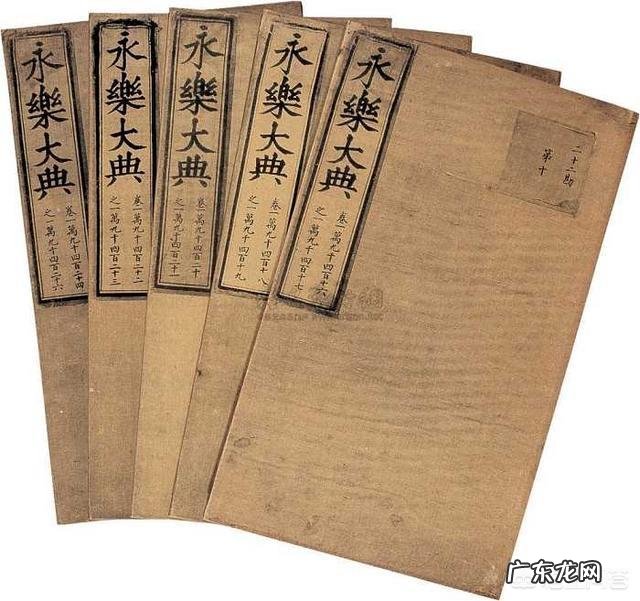 二十二勘
第十
永樂大典
卷一萬九千四百十六
之一萬九千四百十七
永樂大典
卷一萬九千四百十八
之一萬九千四百十九
永樂大典
卷一萬九千四百二十
之一萬九千四百二十一
永樂大典
卷一萬九千四百二十二
之一萬九千四百二十三
永樂大典
卷一萬九千四百二十四
之一萬九千四百二十六
广东龙网